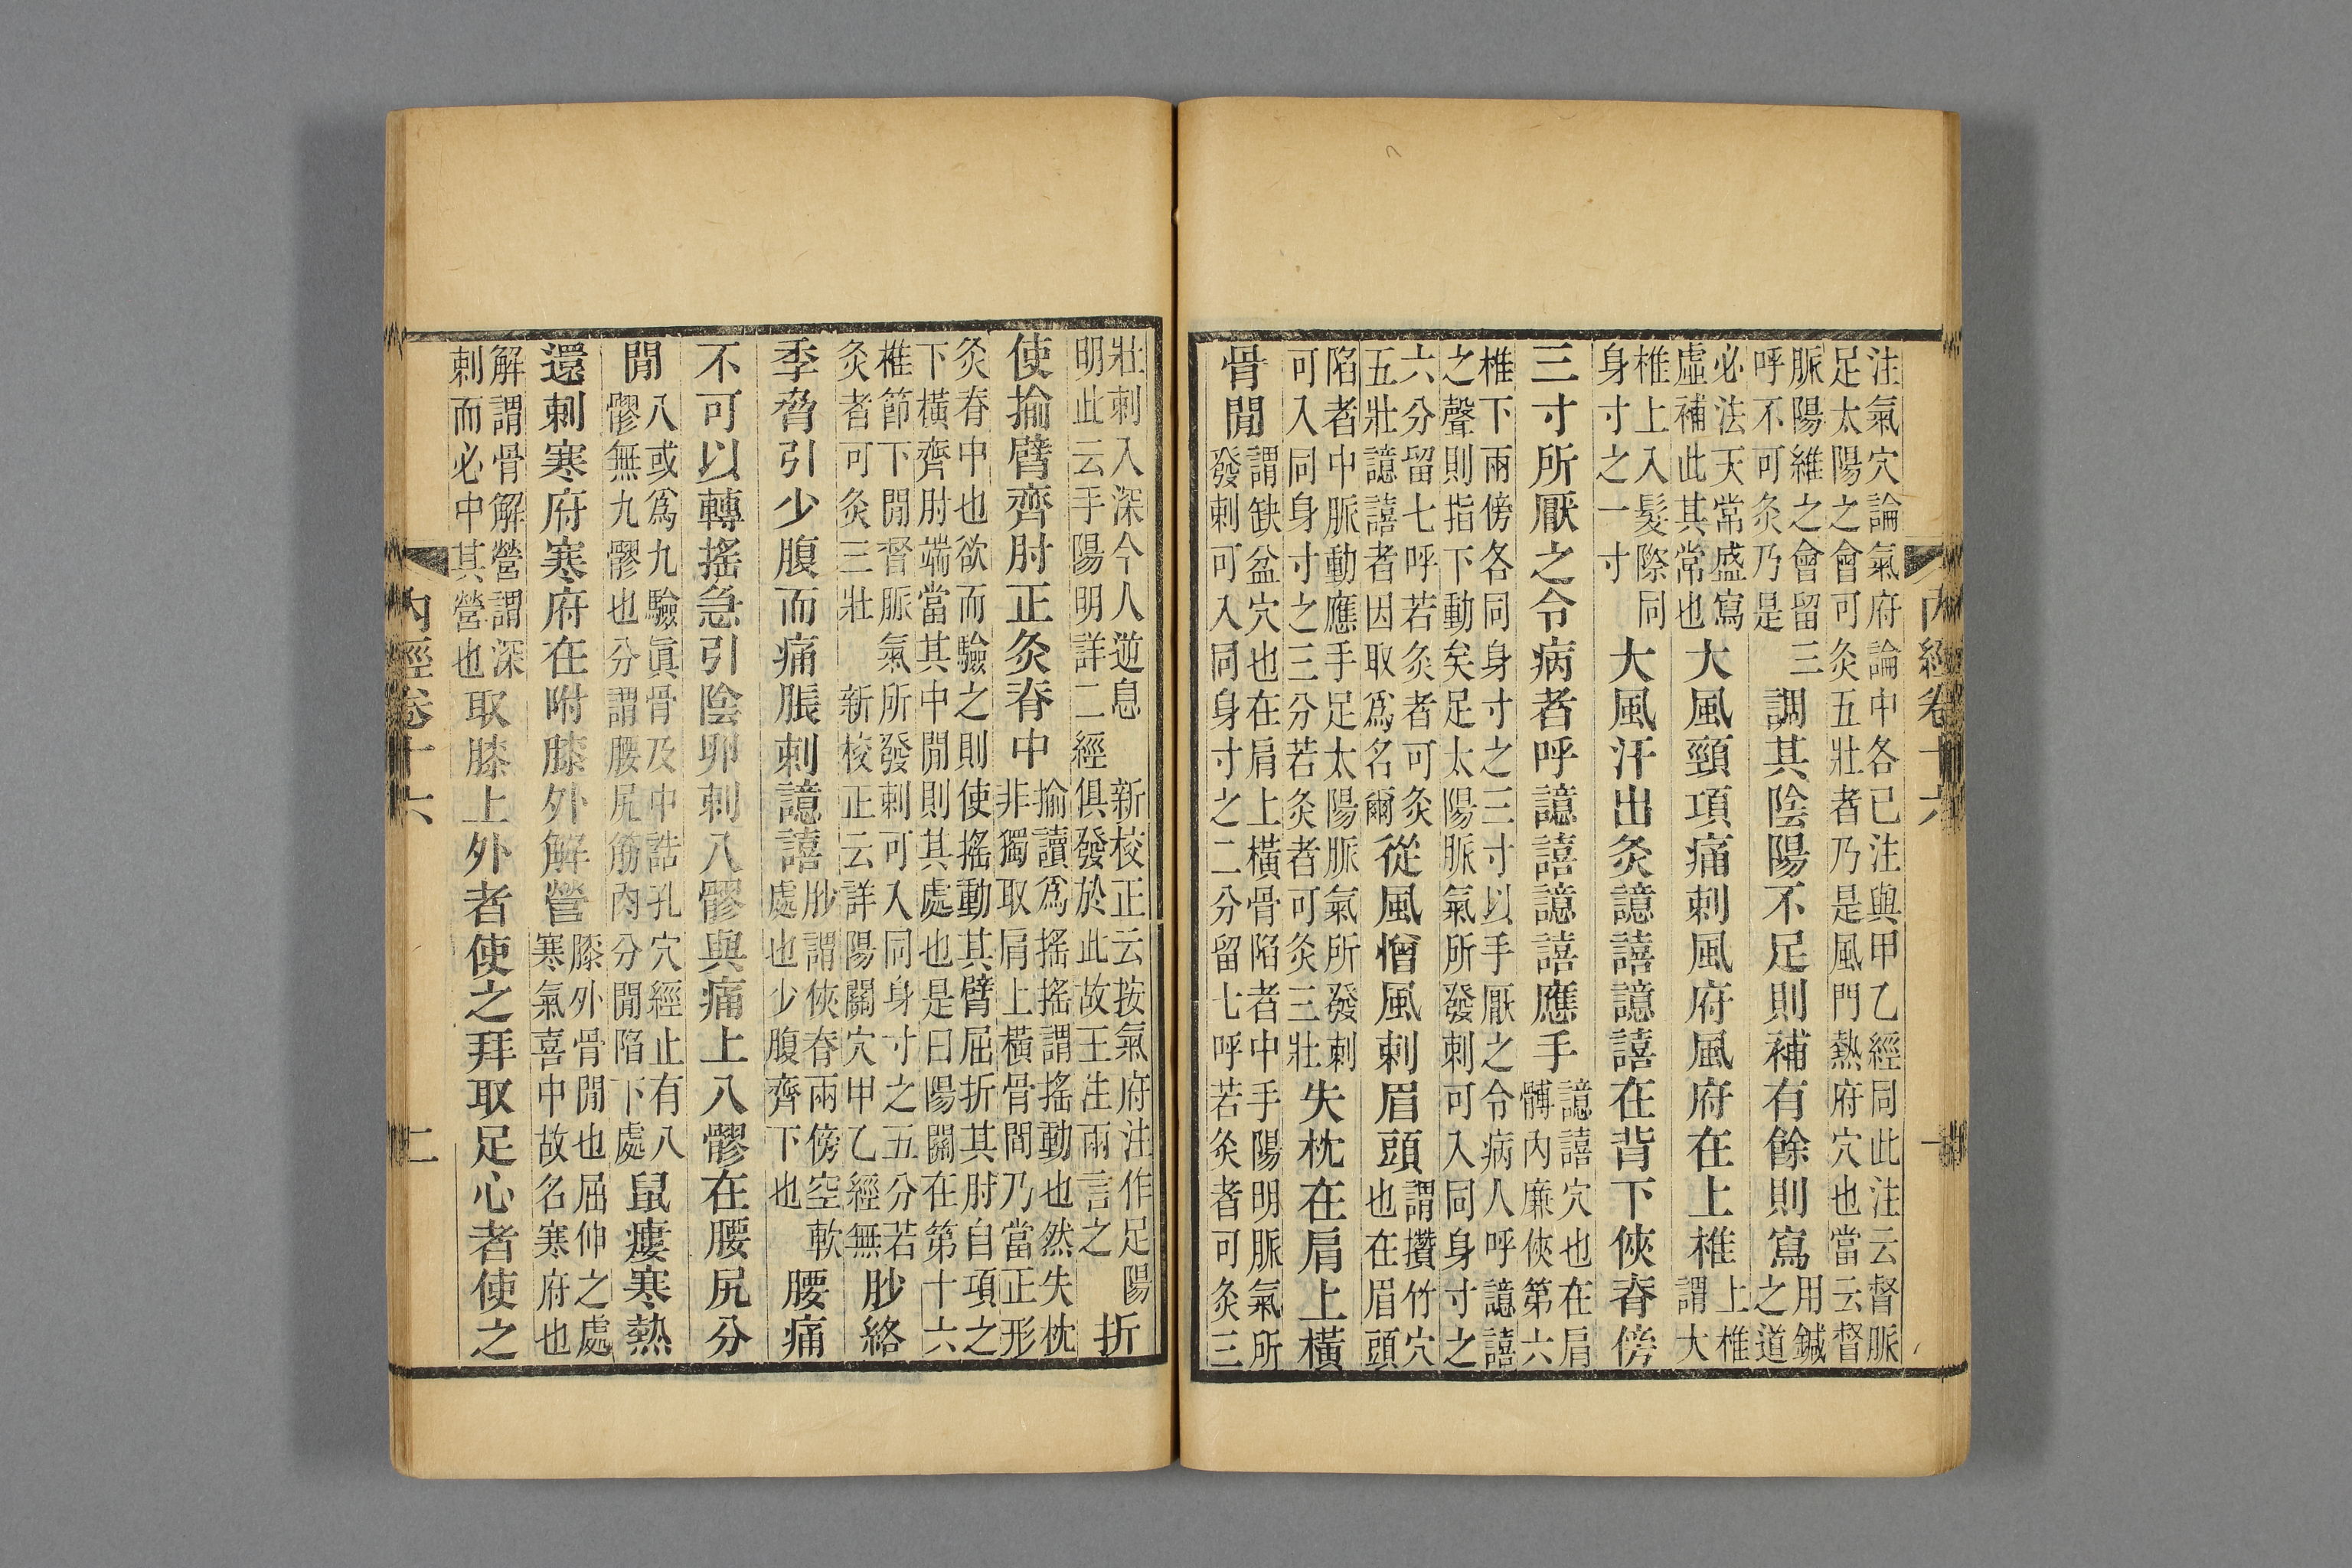 內經卷十六 一
注氣穴論氣府論中各已注與甲乙經同此注云督脈
足太陽之會可灸五壯者乃是風門熱府穴也當云督
脈陽維之會留三
呼不可灸乃是
調其陰陽不足則補有餘則寫
用鍼
之道
必法天常盛寫
虛補此其常也
大風頸項痛刺風府風府在上椎
上椎
謂大
椎上入髮際同
身寸之一寸
大風汗出灸譩譆譩譆在背下俠脊傍
三寸所厭之令病者呼譩譆譩譆應手
譩譆穴也在肩
髆內廉俠第六
椎下兩傍各同身寸之三寸以手厭之令病人呼譩譆
之聲則指下動矣足太陽脈氣所發刺可入同身寸之
六分留七呼若灸者可灸
五壯譩譆者因取爲名爾
從風憎風刺眉頭
謂攢竹穴
也在眉頭
陷者中脈動應手足太陽脈氣所發刺
可入同身寸之三分若灸者可灸三壯
失枕在肩上橫
骨閒
謂缺盆穴也在肩上橫骨陷者中手陽明脈氣所
發刺可入同身寸之二分留七呼若灸者可灸三
壯刺入深令人逆息 新校正云按氣府注作足陽
明此云手陽明詳二經俱發於此故王注兩言之
折
使揄臂齊肘正灸脊中
揄讀爲搖搖謂搖動也然失枕
非獨取肩上橫骨閒乃當正形
灸脊中也欲而驗之則使搖動其臂屈折其肘自項之
下橫齊肘端當其中閒則其處也是曰陽關在第十六
椎節下閒督脈氣所發刺可入同身寸之五分若
灸者可灸三壯 新校正云詳陽關穴甲乙經無
䏚絡
季脅引少腹而痛脹刺譩譆
䏚謂俠脊兩傍空軟
處也少腹齊下也
腰痛
不可以轉搖急引陰卵刺八髎與痛上八髎在腰尻分
閒
八或爲九驗真骨及中誥孔穴經止有八
髎無九髎也分謂腰尻筋肉分閒陷下處
鼠瘻寒熱
還刺寒府寒府在附膝外解營
膝外骨閒也屈伸之處
寒氣喜中故名寒府也
解謂骨解營謂深
刺而必中其營也
取膝上外者使之拜取足心者使之
內經卷十六 二